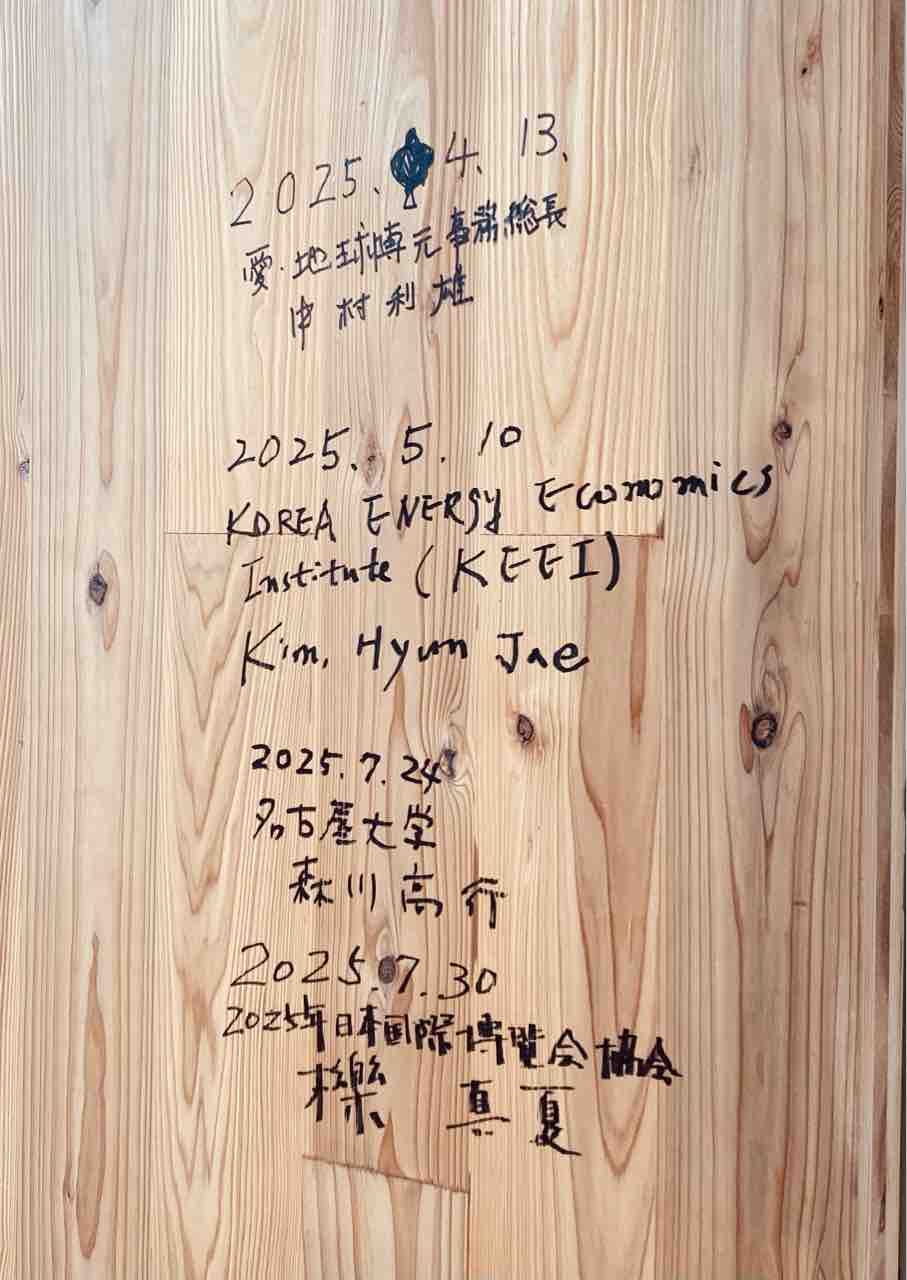 2025. 4. 13.
愛・地球博元事務総長
中村利雄
2025. 5. 10
KOREA ENERGY Economics
Institute (KEEI)
Kim, Hyun Jae
2025.7.24
名古屋大学
森川高行
2025.7.30
2025年日本国際博覧会協会
櫟 真夏